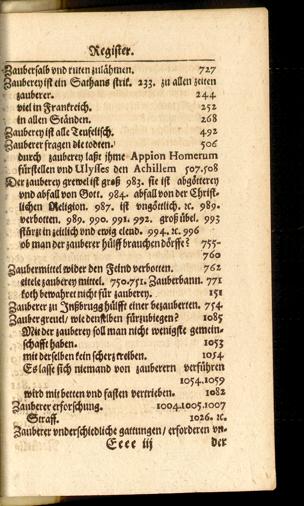 Register.
Zaubersalb vnd ruten zulähmen. 727
Zauberey ist ein Sathans strik. 233. zu allen zeiten
zauberer. 244
viel in Franckreich. 252
in allen Ständen. 268
Zauberey ist alle Teufelisch. 492
Zauberer fragen die todten. 506
durch zauberey laßt ihme Appion Homerum
fürstellen vnd Ulysses den Achillem 507.508
Der zauberey grewel ist groß 983. sie ist abgötterey
vnd abfall von Gott. 984. abfall von der Christ-
lichen Religion. 987. ist vngöttlich. ꝛc. 989
verbotten. 989. 990. 991. 992. groß übel. 993
stürzt in zeitlich vnd ewig elend. 994. ꝛc. 996
ob man der zauberer hülff brauchen dörffe? 755-
760
Zaubermittel wider den Feind verbotten. 762
eitele zauberey mittel. 750.751. Zauberbann. 771
koth bewahret nicht für zauberey. 151
Zauberer zu Inßbrugg hülfft einer bezauberten. 754
Zaubergreuel/ wie denselben fürzubiegen? 1085
Mit der zauberey soll man nicht wenigste gemein-
schafft haben. 1053
mit derselben kein scherz treiben. 1054
Es lasse sich niemand von zauberern verführen
1054.1059
wird mit betten vnd fasten vertrieben. 1082
Zauberer erforschung. 1004.1005.1007
Straff. 1026. ꝛc.
Zauberer vnderschiedliche gattungen/ erforderen vn-
Eeee iij der